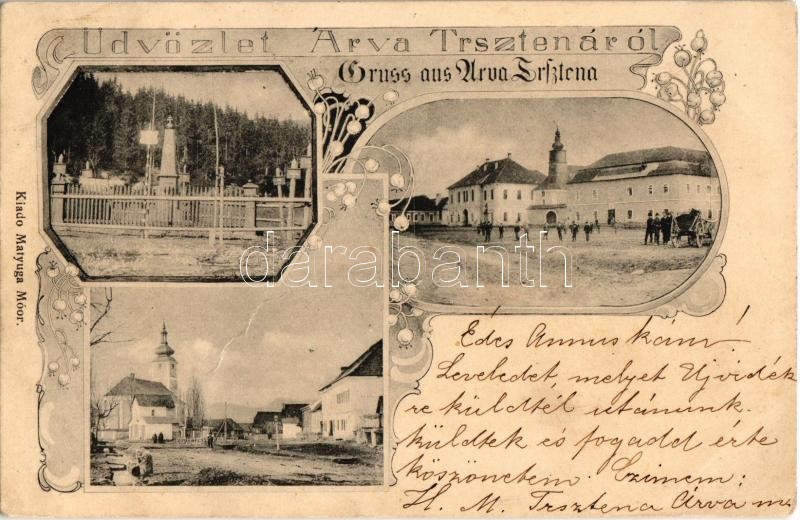 Üdvözlet Árva Trsztenáról
Gruss aus Arva Trsztena
Kiadó Matyuga Móor.
darabanth
Édes Annuskám!
Leveledet, melyet Ujvidék
re küldtél utánunk.
küldtek és fogadd érte
köszönetem. Czimem:
H. M. Trsztena Árva m.